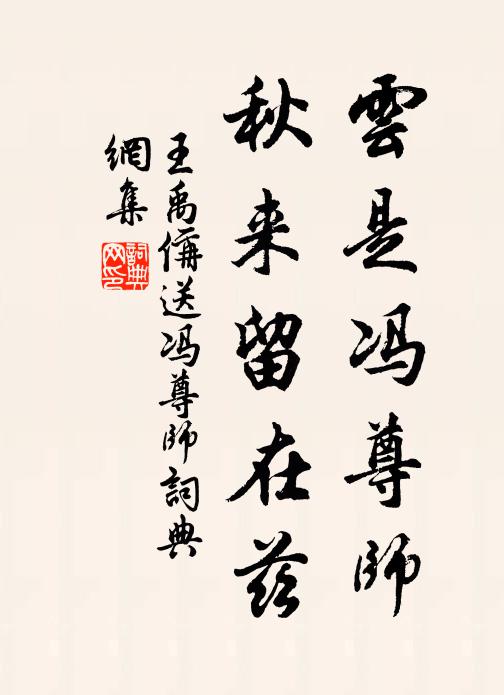 雲是冯尊師
秋来留在茲
王禹偁送冯尊師詞典
網集
詞典
网印